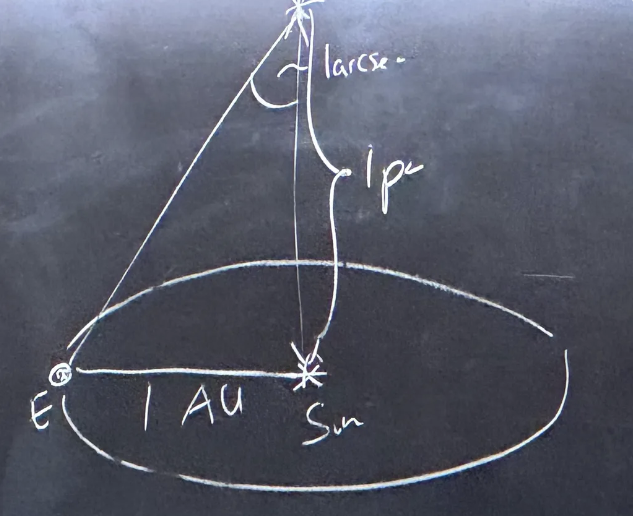 1 arcsec
1 pc
E
1 AU
Sun